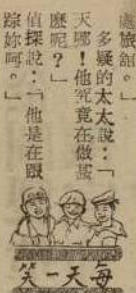 處旅館。」
多疑的太太說：「
天哪！他究竟在做甚
麼呢？」
偵探說：「他是在跟
踪妳呵。」
每天一笑